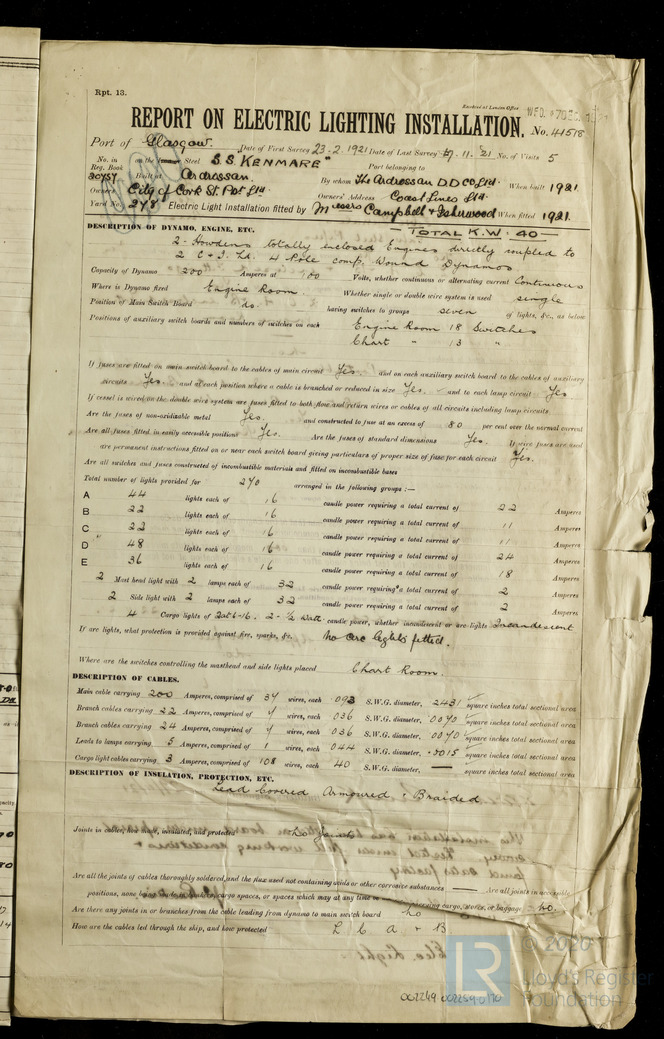 Rpt. 13.
Received at London Office
REPORT ON ELECTRIC LIGHTING INSTALLATION. No. 41518
Port of Glasgow. Date of First Survey 23.2.1921 Date of Last Survey 11.'21 No. of Visits 5
No. in on the Steel S.S. KENMARE" Port belonging to
Reg. Book
30757 Built at Ardrossan. By whom The Ardrossan D.D Co Ltd. When built 1921.
Owners City of Cork St. Pkt Ltd. Owners' Address Coast Lines Ltd.
Yard No. 278 Electric Light Installation fitted by Messrs Campbell & Isherwood When fitted 1921.
DESCRIPTION OF DYNAMO, ENGINE, ETC. TOTAL K.W. 40
2 - Howdens totally inclosed Engines directly coupled to
2 C + I. Ld. 4 Pole comp. Wound Dynamos
Capacity of Dynamo 200 Amperes at 100 Volts, whether continuous or alternating current Continuous
Where is Dynamo fixed Engine Room. Whether single or double wire system is used single
Position of Main Switch Board having switches to groups seven of lights, &c., as below
Positions of auxiliary switch boards and numbers of switches on each Engine Room 18 Switches
Chart " 13 "
If fuses are fitted on main switch board to the cables of main circuit Yes. and on each auxiliary switch board to the cables of auxiliary
circuits Yes. and at each position where a cable is branched or reduced in size Yes. and to each lamp circuit Yes
If vessel is wired on the double wire system are fuses fitted to both flow and return wires or cables of all circuits including lamp circuits
Are the fuses of non-oxidizable metal Yes. and constructed to fuse at an excess of 80 per cent over the normal current
Are all fuses fitted in easily accessible positions Yes. Are the fuses of standard dimensions Yes. If wire fuses are used
are permanent instructions fitted on or near each switch board giving particulars of proper size of fuse for each circuit Yes.
Are all switches and fuses constructed of incombustible materials and fitted on incombustible bases
Total number of lights provided for 270 arranged in the following groups :—
A 44 lights each of 16 candle power requiring a total current of 22 Amperes
B 22 lights each of 16 candle power requiring a total current of 11 Amperes
C 22 lights each of 16 candle power requiring a total current of 11 Amperes
D 48 lights each of 16 candle power requiring a total current of 24 Amperes
E 36 lights each of 16 candle power requiring a total current of 18 Amperes
2 Mast head light with 2 lamps each of 32 candle power requiring a total current of 2 Amperes
2 Side light with 2 lamps each of 32 candle power requiring a total current of 2 Amperes
4 Cargo lights of 2 at 6-16. 2 - ½ Watt candle power, whether incandescent or arc lights Incandescent
If arc lights, what protection is provided against fire, sparks, &c. No arc lights fitted.
Where are the switches controlling the masthead and side lights placed Chart Room.
DESCRIPTION OF CABLES.
Main cable carrying 200 Amperes, comprised of 37 wires, each .093 S.W.G. diameter, .2431 square inches total sectional area
Branch cables carrying 22 Amperes, comprised of 7 wires, each .036 S.W.G. diameter, .0070 square inches total sectional area
Branch cables carrying 24 Amperes, comprised of 7 wires, each .036 S.W.G. diameter, .0070 square inches total sectional area
Leads to lamps carrying 5 Amperes, comprised of 1 wires, each .044 S.W.G. diameter, .0015 square inches total sectional area
Cargo light cables carrying 3 Amperes, comprised of 108 wires, each 40 S.W.G. diameter, — square inches total sectional area
DESCRIPTION OF INSULATION, PROTECTION, ETC.
Lead Covered Armoured & Braided.
Joints in cables, how made, insulated, and protected No Joints
Are all the joints of cables thoroughly soldered, and the flux used not containing acids or other corrosive substances — Are all joints in accessible
positions, none being made in bunkers, cargo spaces, or spaces which may at any time be used for carrying cargo, stores, or baggage No.
Are there any joints in or branches from the cable leading from dynamo to main switch board No
How are the cables led through the ship, and how protected L C A + B
002249-002259-0170
LR © 2020
Lloyd's Register
Foundation